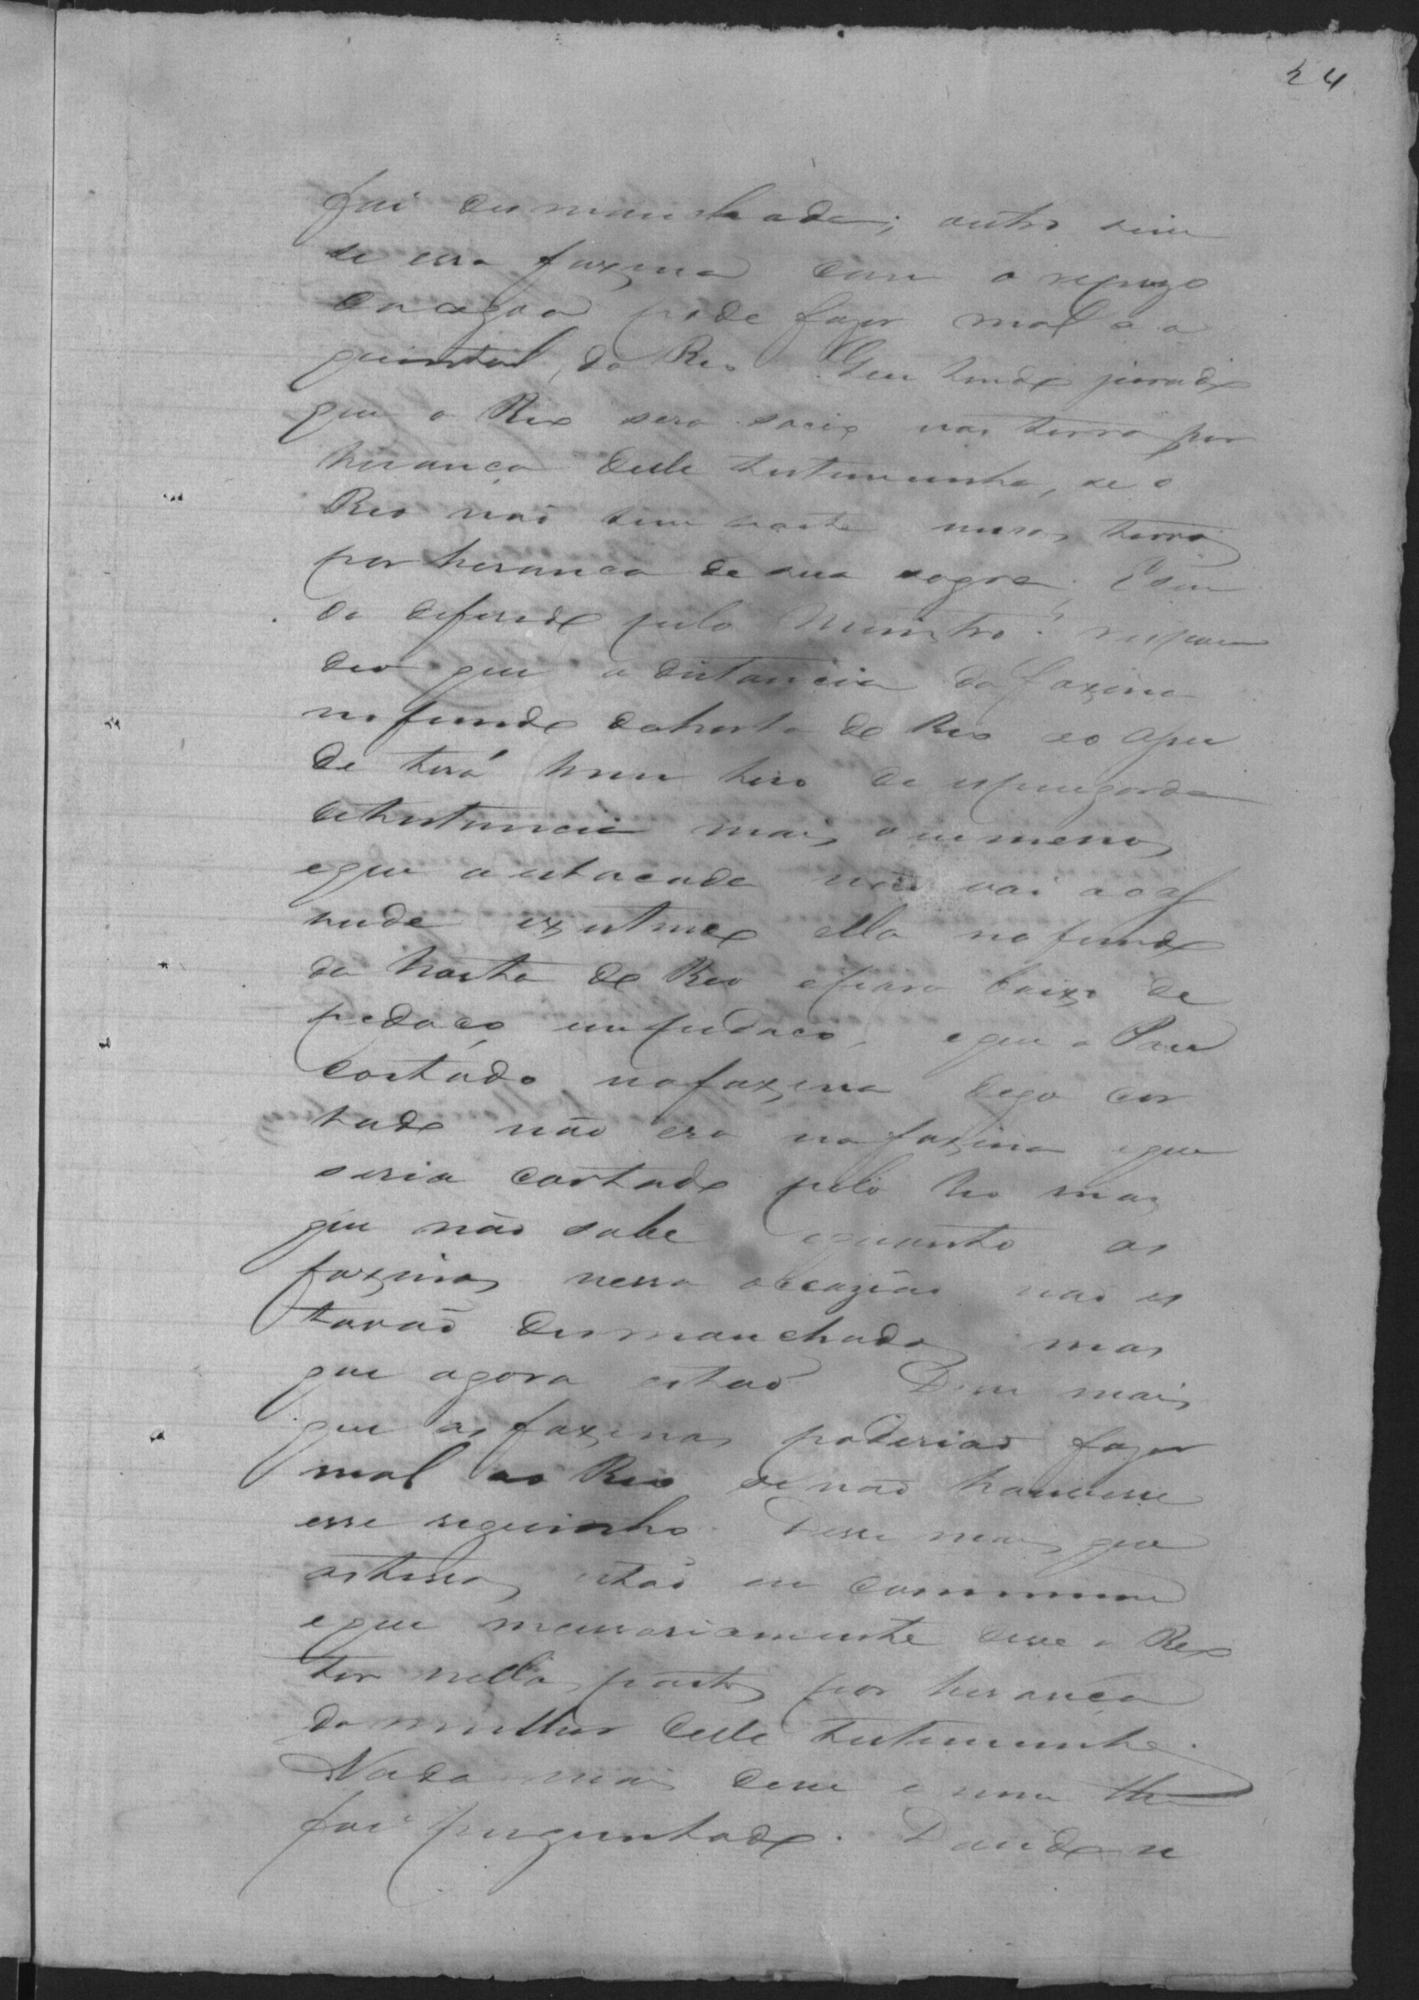 24
foi desmanchada; outro sim
se essa faxina com o repuzo
da agoa pode fazer mal a o
quintal, do Reo. Que tendo jurado
que o Reo sera socio nas terra por
herança delle testemunha, se o
Reo não tem parte nessas terras
por herança de sua sogra. E sen
do deferido pelo Ministro: respon
deo que a distancia da faxina
no fundo da horta do Reo e o açu
de terá hum tiro de espingarda
de distancia mais ou menos
e que a estacada não vai a o a
hude existindo ella no fundo
da horta do Reo e para baixo de
pedaço em pedaço, e que o Pau
cortado na faxina digo cor
tado não era na faxina e que
seria cortado pelo Reo mas
que não sabe e quanto as
faxinas nessa occazião não es
tavão desmanchadas mas
que agora estão. Disse mais
que as faxinas poderião fazer
mal ao Reo se não houvesse
esse reguinho. Disse mais que
as terras estão em commum
e que necessariamente deve o Reo
ter nellas parte por herança
da mulher delle testemunha.
Nada mais disse e nem lhe
foi perguntado. Dando se